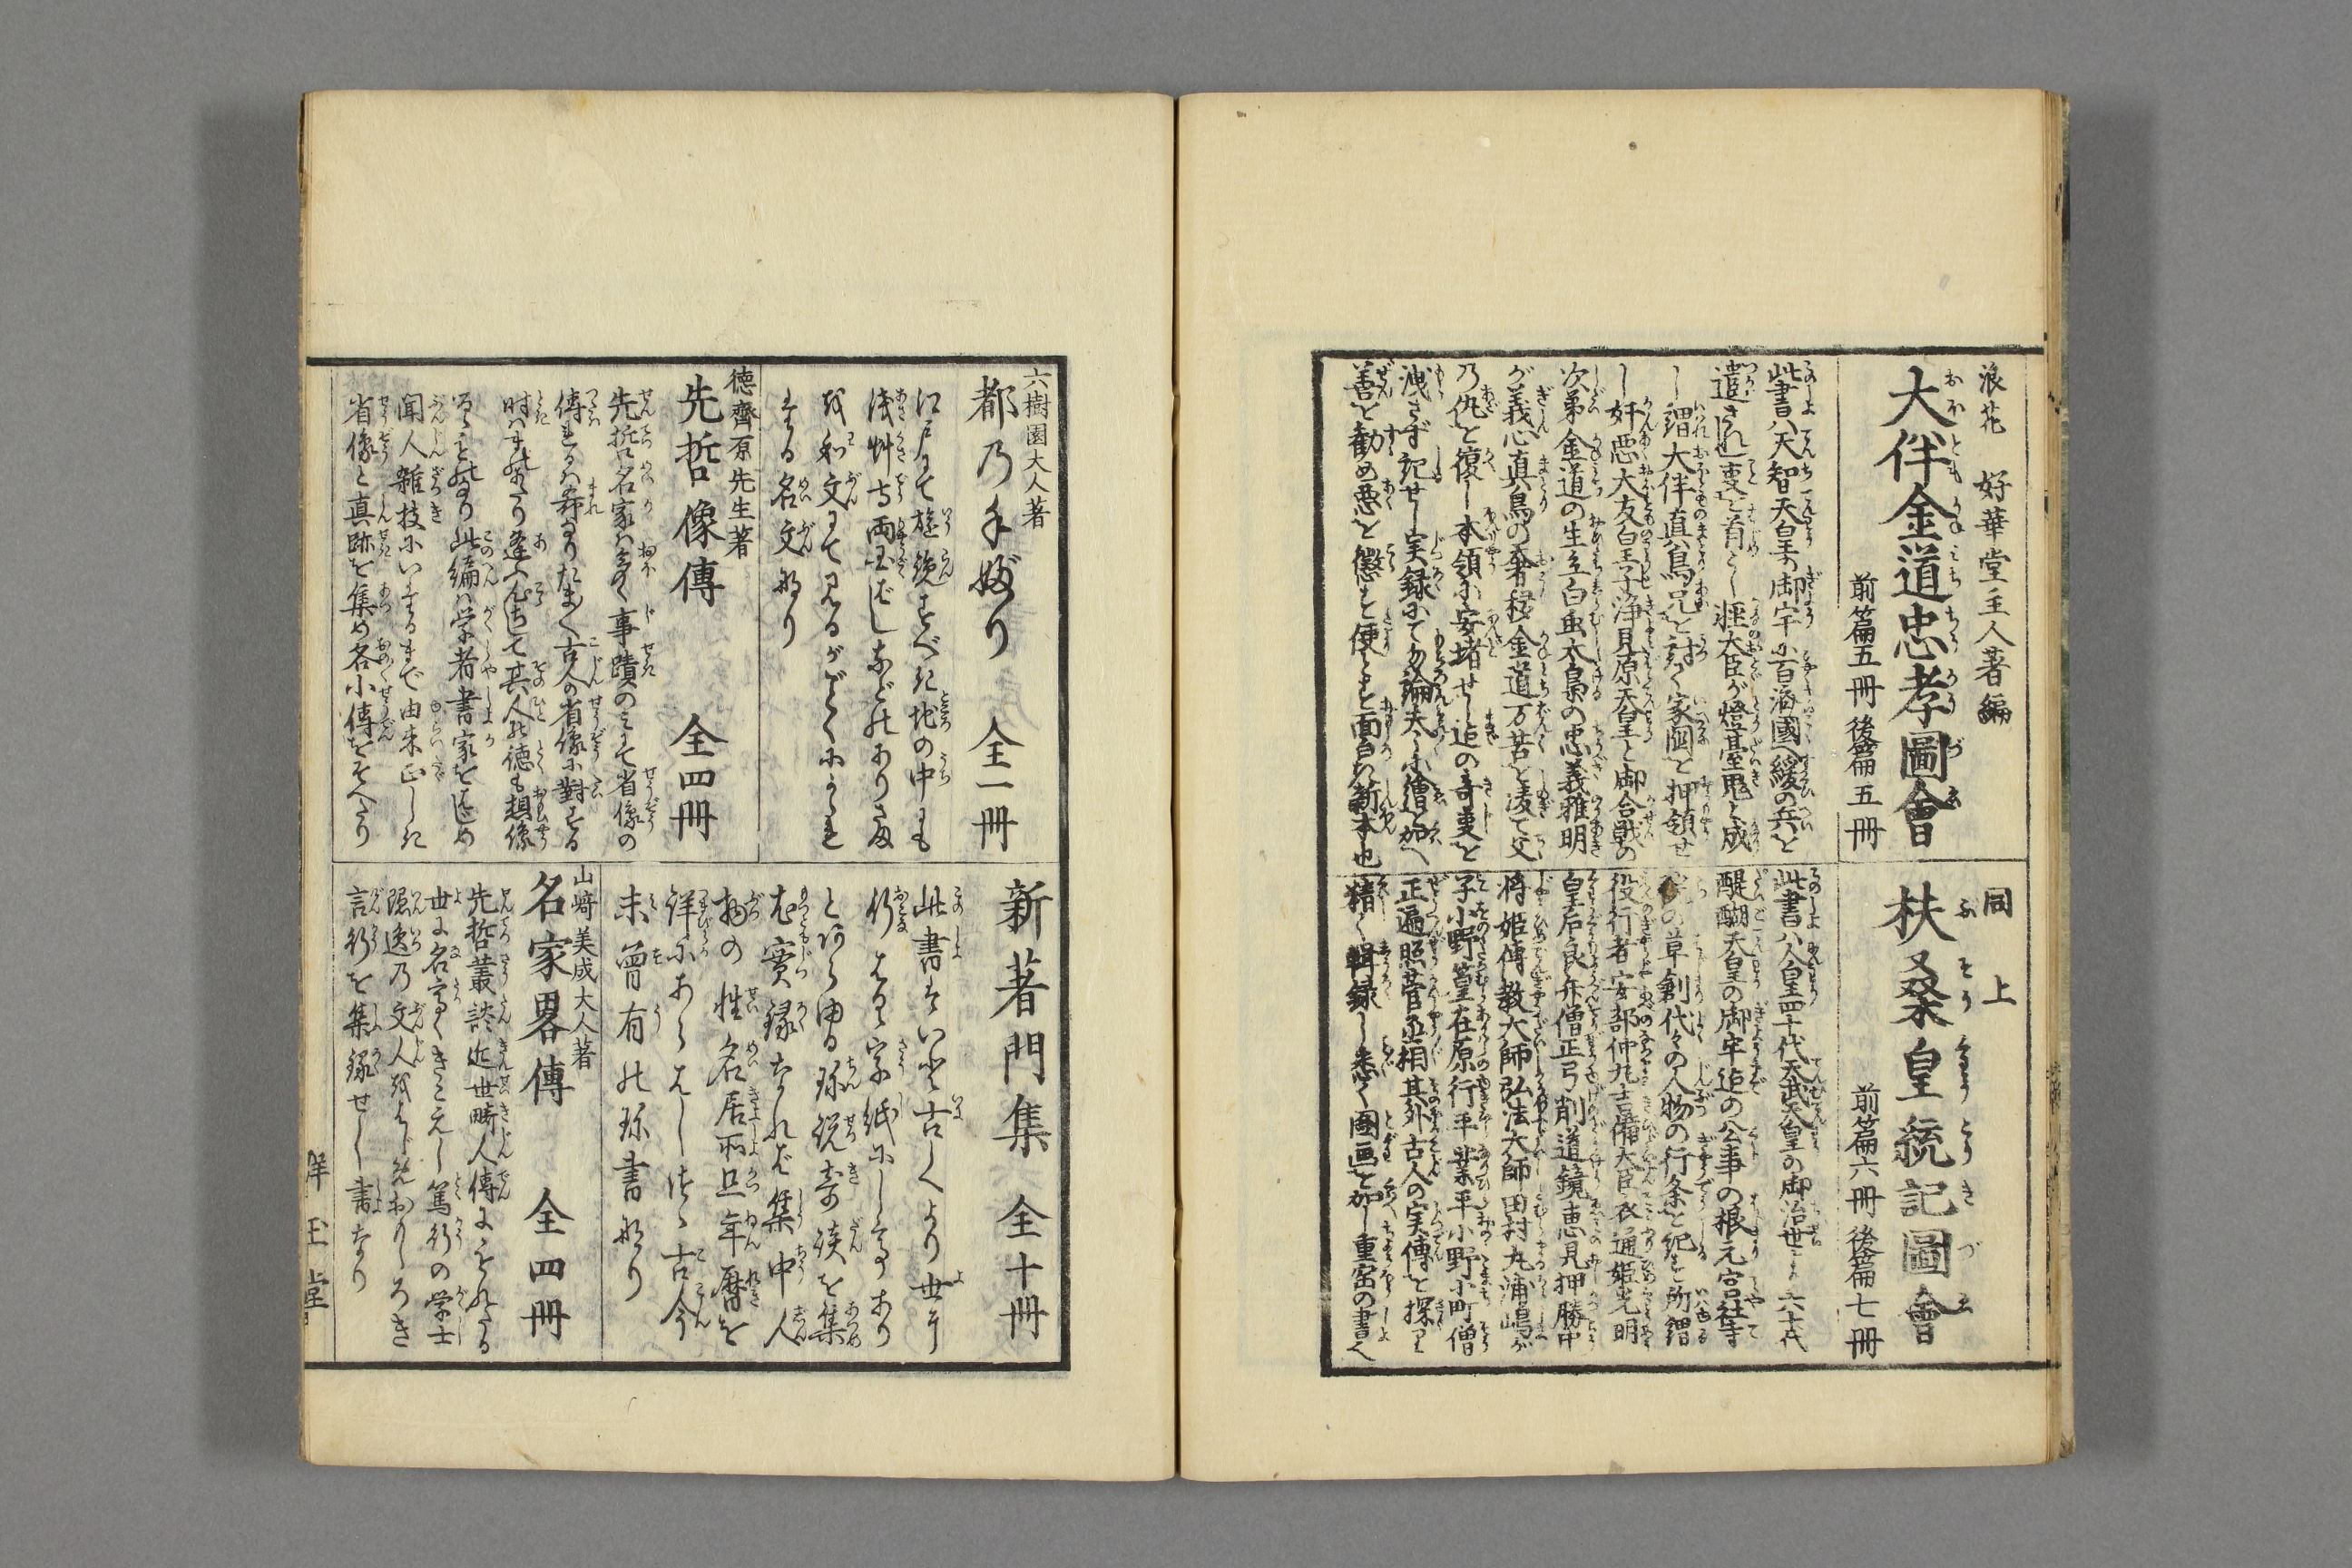 浪花　好華堂主人著編
大伴金道忠孝圖會
前篇五冊　後篇五冊
此書ハ天智天皇の御宇に百済國へ援の兵を
遣されし事を首とし軽大臣が燈臺鬼と成
し謂大伴真鳥兄を討て家国を押領せ
し奸悪大友皇子浄見原天皇と御合戦の
次第金道の生立白虫太梟の忠義雅明
が義心真鳥の奢移金道万苦を凌て父
乃仇を復し本領に安堵せし迄の奇事を
洩さず記せし実録にて勿論夫々に繪を加へ
善を勧め悪を懲す便とす面白き新本也
同　上
扶桑皇統記圖會
前篇六冊　後篇七冊
此書ハ人皇四十代天武天皇の御治世より六十代
醍醐天皇の御宇迄の公事の根元宮社寺
の草創代々の人物の行条を紀す所謂
役行者安部仲丸吉備大臣衣通姫光明
皇后良弁僧正弓削道鏡恵見押勝中
将姫傳教大師弘法大師田村丸浦嶋が
子小野篁在原行平業平小野小町僧
正遍照菅丞相其外古人の実傳を探り
精く輯録し悉く圖画を加し重宝の書也
六樹園大人著
都乃手ぶり　全一冊
江戸にて遊覧すべき地の中にも
浅艸寺両国ばしなどのありさま
を和文にて見るがごとくにかゝれ
たる名文なり
徳齊原先生著
先哲像傳　全四冊
先哲名家ハ多く事蹟のミにて省像の
傳れるハ希なりたま〳〵古人の省像に對する
時ハまのあたり逢へる心ちして其人の徳も想像
るゝものなり此編ハ学者書家をはじめ
聞人雜技にいたるまで由来正しき
省像と真跡を集め各小傳をそへたり
新著聞集　全十冊
此書はいと古くより世に
行はる字紙にして写あり
とあらゆる珍説奇談を集
む實録なれば集中人
物の姓名居所且年暦を
詳にあらはしけれバ古今
未曾有の珍書なり
山崎美成大人著
名家畧傳　全四冊
先哲叢談近世畸人傳にもれたる
世に名高くきこえし篤行の学士
隠逸乃文人をはじめおもしろき
言行を集録せし書なり
羣玉堂